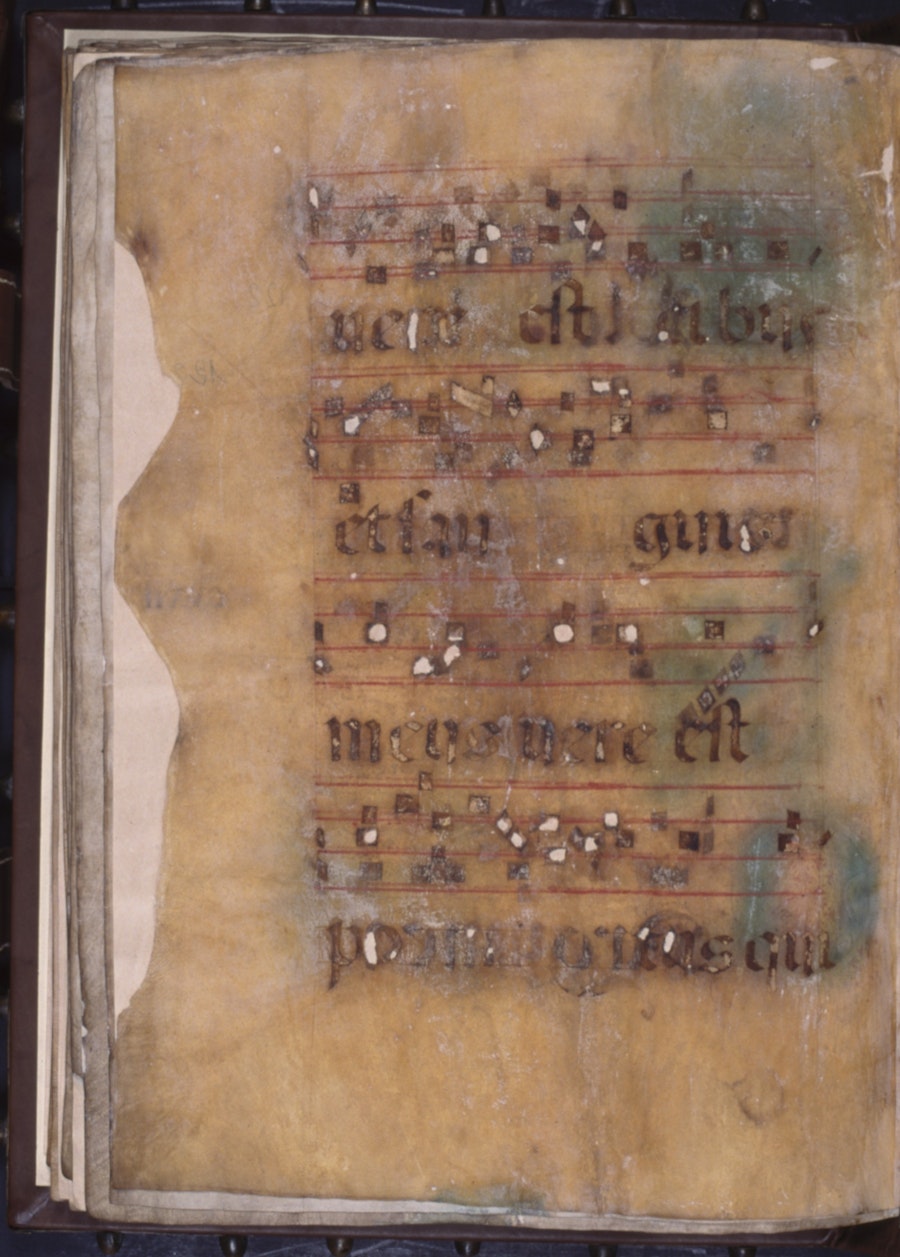 uere est cibus
et san guis
meus uere est
potus qui